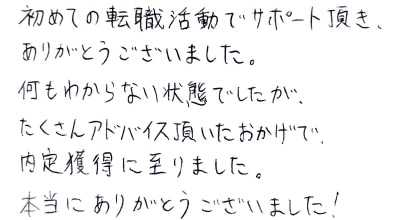 初めての転職活動でサポート頂き、
ありがとうございました。
何もわからない状態でしたが、
たくさんアドバイス頂いたおかげで、
内定獲得に至りました。
本当にありがとうございました!